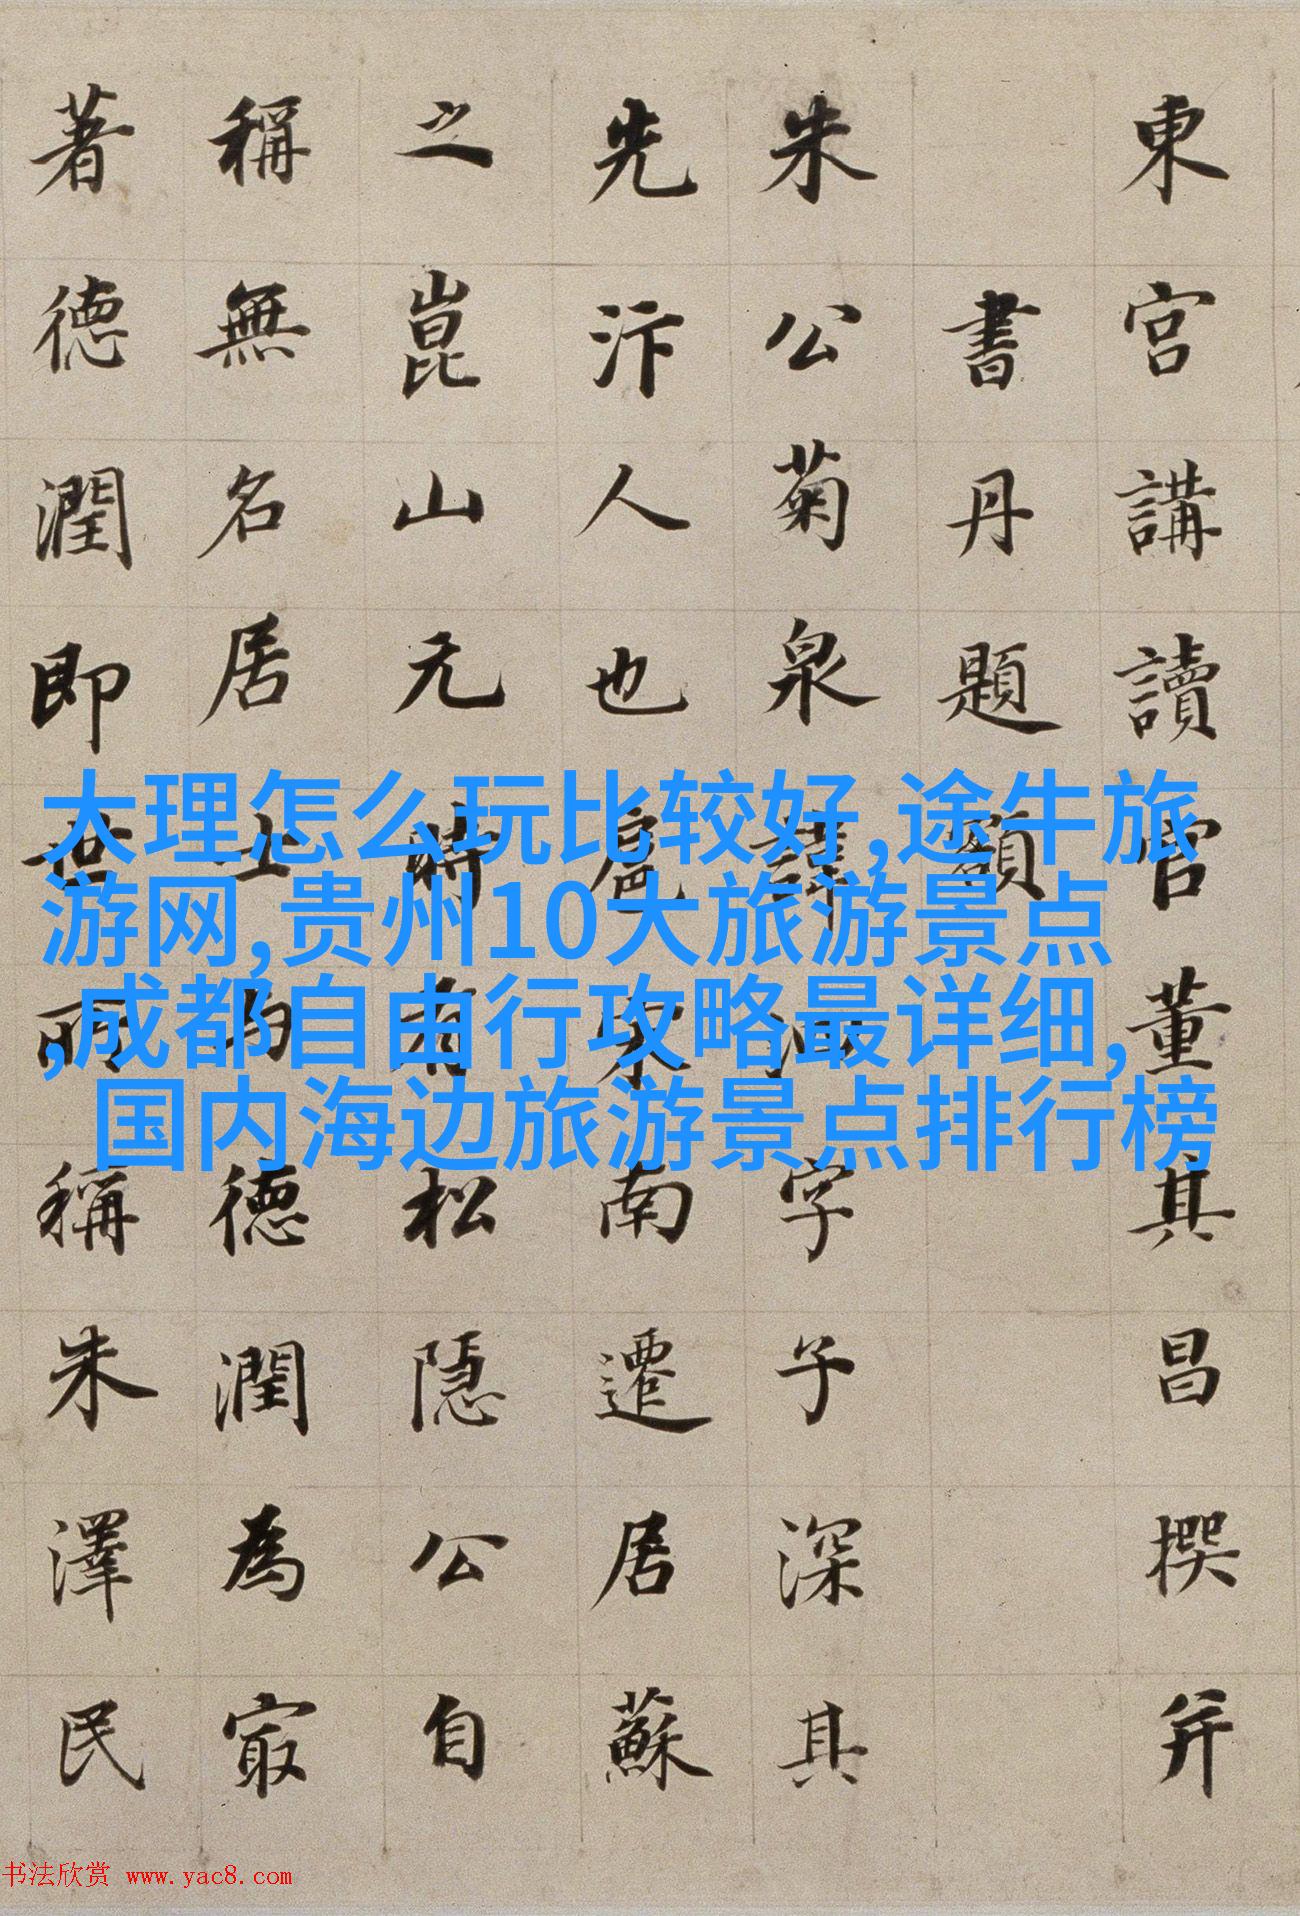 東宮講讀官董其昌撰并
書丹題額
朱公菊泉諱字子深其
先汴人也扈宋南遷居蘇
之崑山元時有松隱公自
稱無名居士德潤為㝡
著德潤即世所稱朱澤民
大理怎么玩比较好,途牛旅
游网,贵州10大旅游景点
,成都自由行攻略最详细,
国内海边旅游景点排行榜
书法欣赏 www.yac8.com